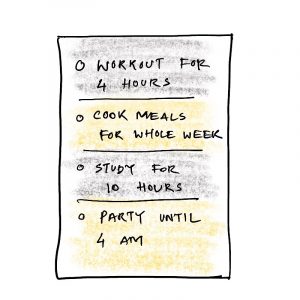 WORKOUT FOR
4 HOURS
COOK MEALS
FOR WHOLE WEEK
STUDY FOR
10 HOURS
PARTY UNTIL
4 AM